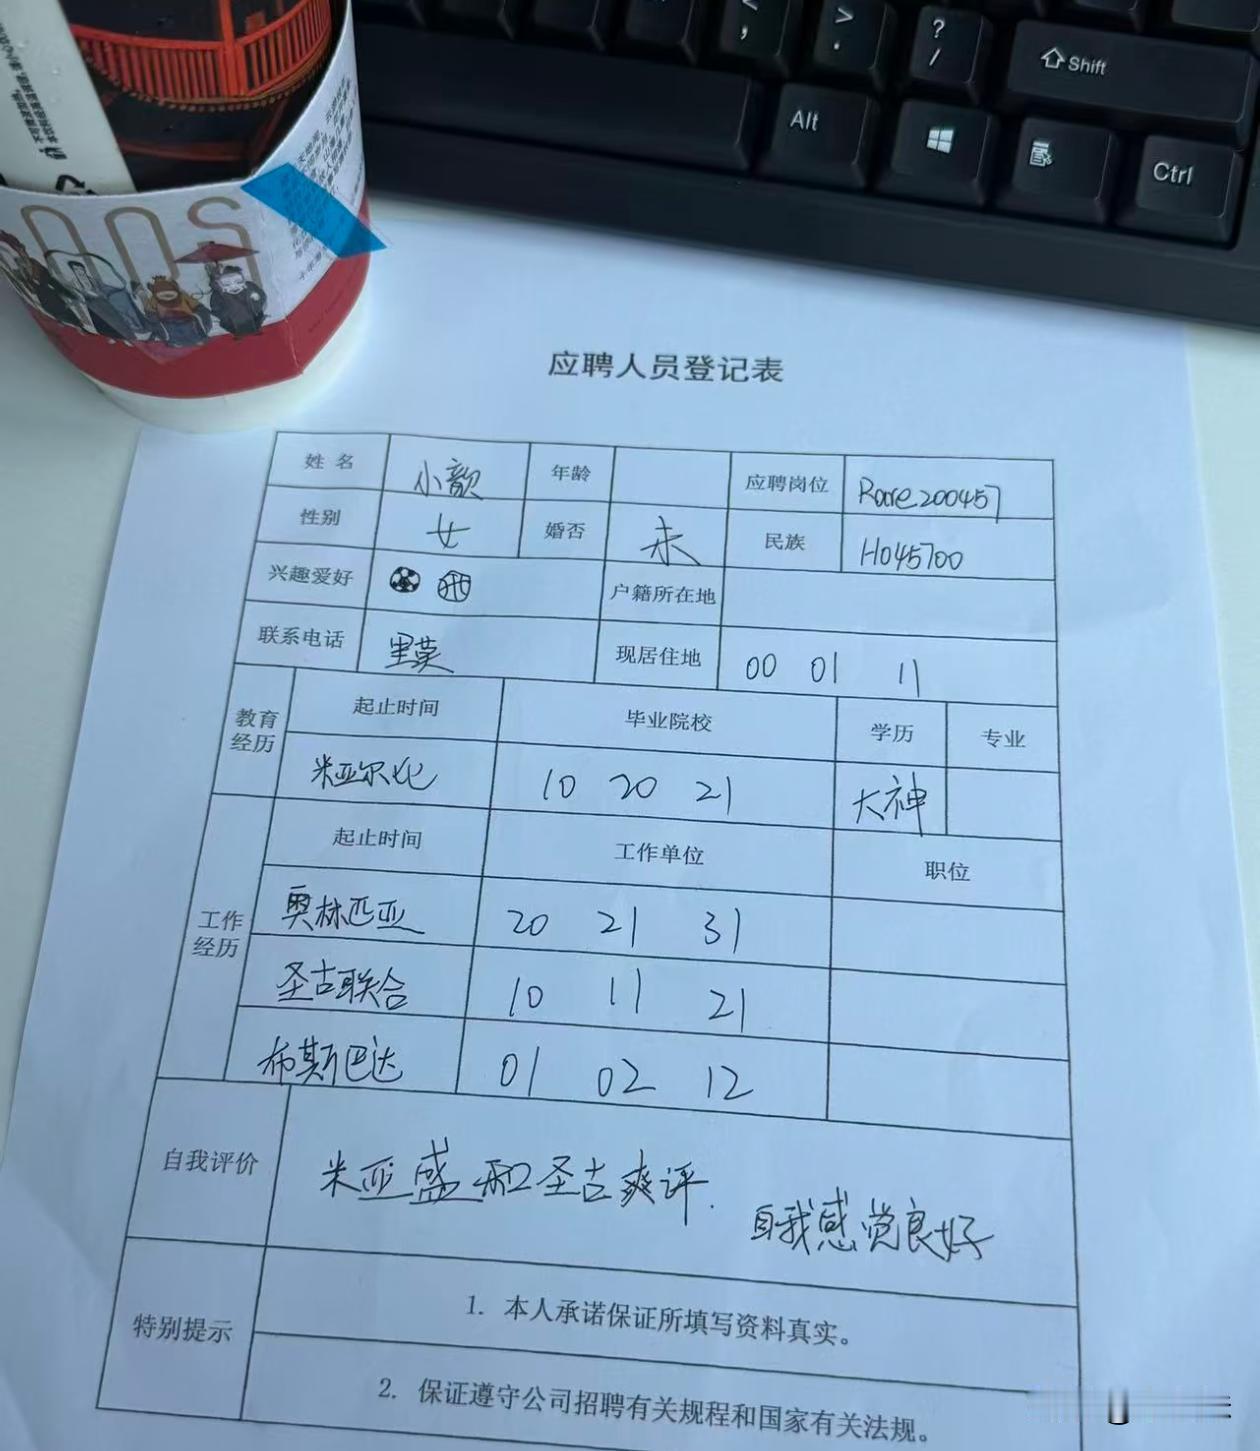 < ,
> .
? /
Shift
Alt
Ctrl
应聘人员登记表
姓 名 小歆 年龄 应聘岗位 Rore200457
性别 女 婚否 未 民族 H045700
兴趣爱好 户籍所在地
联系电话 里莫 现居住地 00 01 11
教育经历 起止时间 毕业院校 学历 专业
米亚尔比 10 20 21 大神
工作经历 起止时间 工作单位 职位
奥林匹亚 20 21 31
圣吉联合 10 11 21
布斯巴达 01 02 12
自我评价 米亚盛和圣吉爽评.
自我感觉良好
特别提示 1. 本人承诺保证所填写资料真实。
2. 保证遵守公司招聘有关规程和国家有关法规。